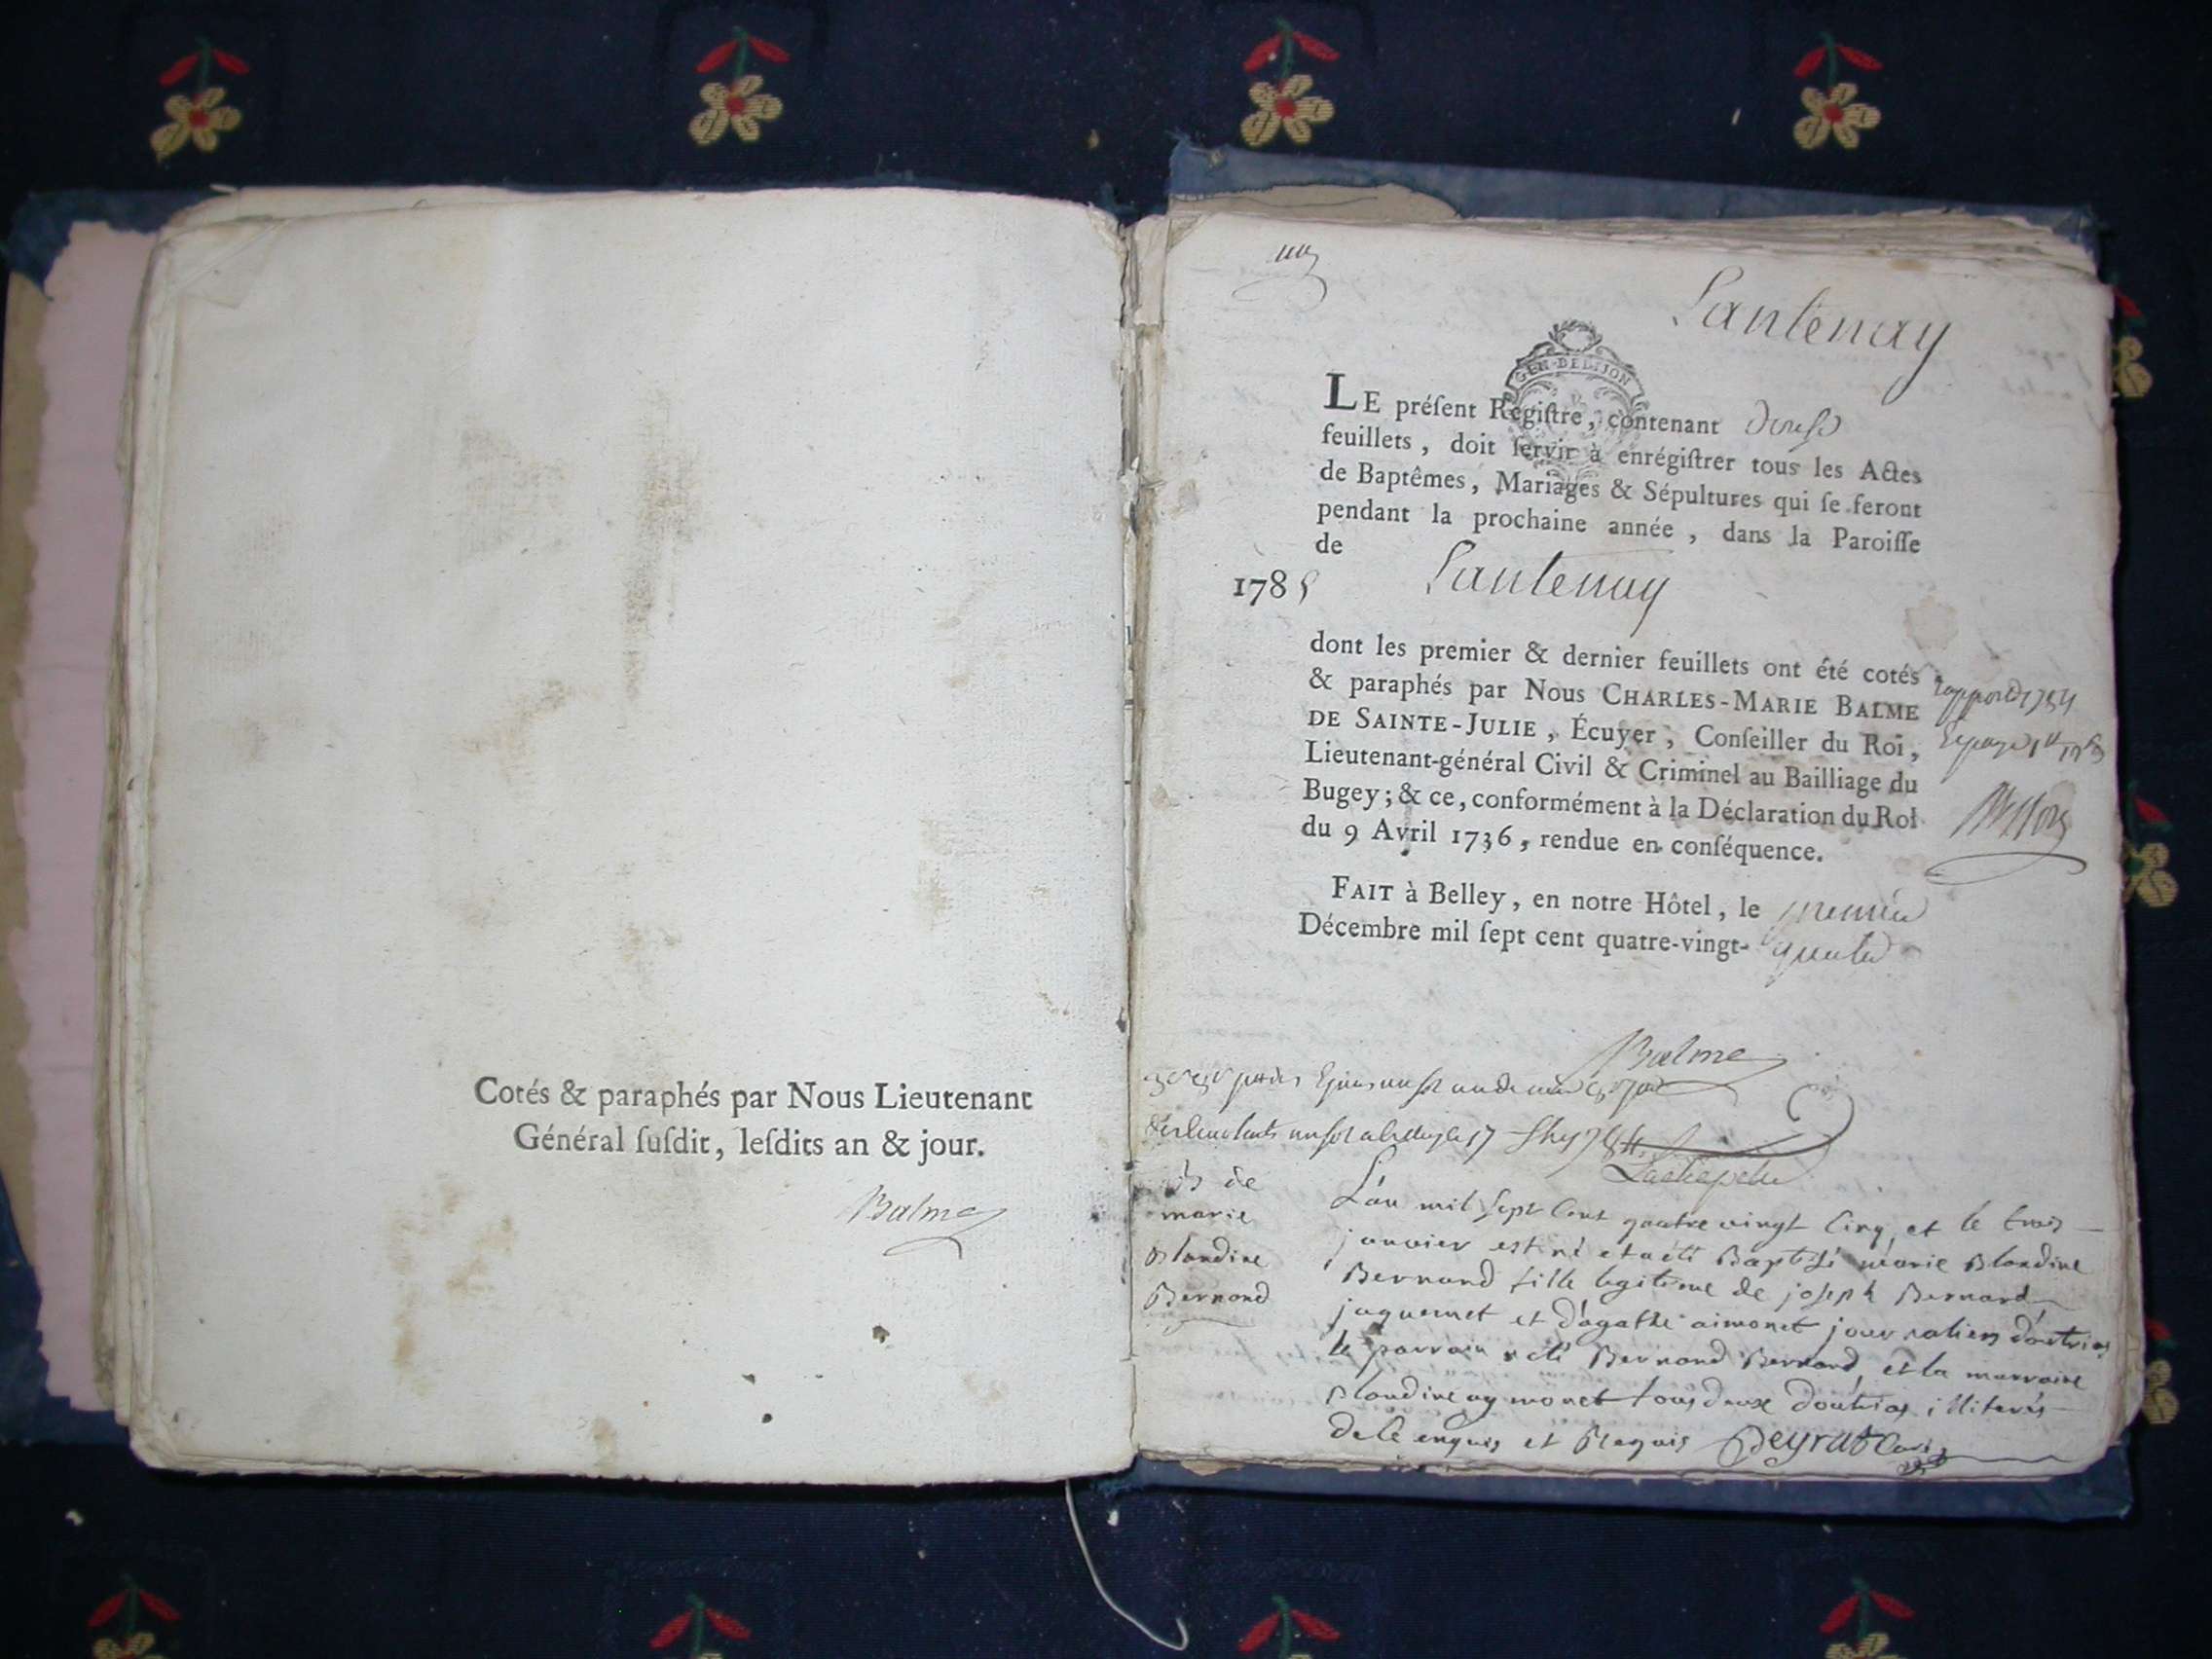 Cotés & paraphés par Nous Lieutenant
Général ſuſdit, leſdits an & jour.
Balme
Lantenay
GEN. DE DIJON
LE préſent Regiſtre, contenant douse
feuillets, doit ſervir à enrégiſtrer tous les Actes
de Baptêmes, Mariages & Sépultures qui ſe feront
pendant la prochaine année, dans la Paroiſſe
de
1785 Lantenay
dont les premier & dernier feuillets ont été cotés
& paraphés par Nous CHARLES-MARIE BALME
DE SAINTE-JULIE, Écuyer, Conſeiller du Roi,
Lieutenant-général Civil & Criminel au Bailliage du
Bugey; & ce, conformément à la Déclaration du Roi
du 9 Avril 1736, rendue en conſéquence.
FAIT à Belley, en notre Hôtel, le premier
Décembre mil ſept cent quatre-vingt- quatre
Balme
de
marie
Blandine
Bernand
L'an mil sept cent quatre vingt cinq, et le trois
janvier est né et a été Baptisé marie Blandine
Bernand fille legitime de joseph Bernard
jaquemet et d'agathe aimonet journaliers d'outriaz
le parrain a été Bernand Bernand et la marraine
Blandine aymonet tous deux d'outriaz illiterés
de ce enquis et Requis Peyrat Curé